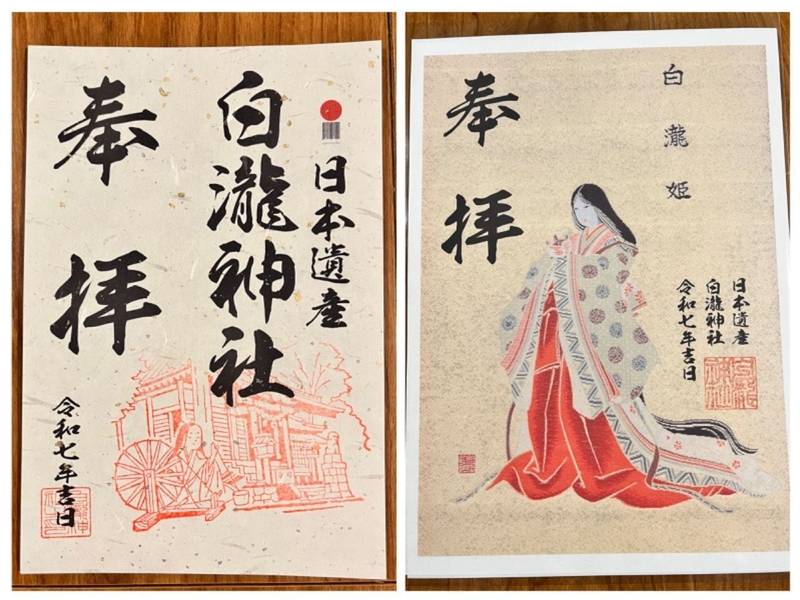 日本遺産
白瀧神社
奉拝
令和七年吉日
白瀧姫
奉拝
日本遺産
白瀧神社
令和七年吉日
白瀧
神社